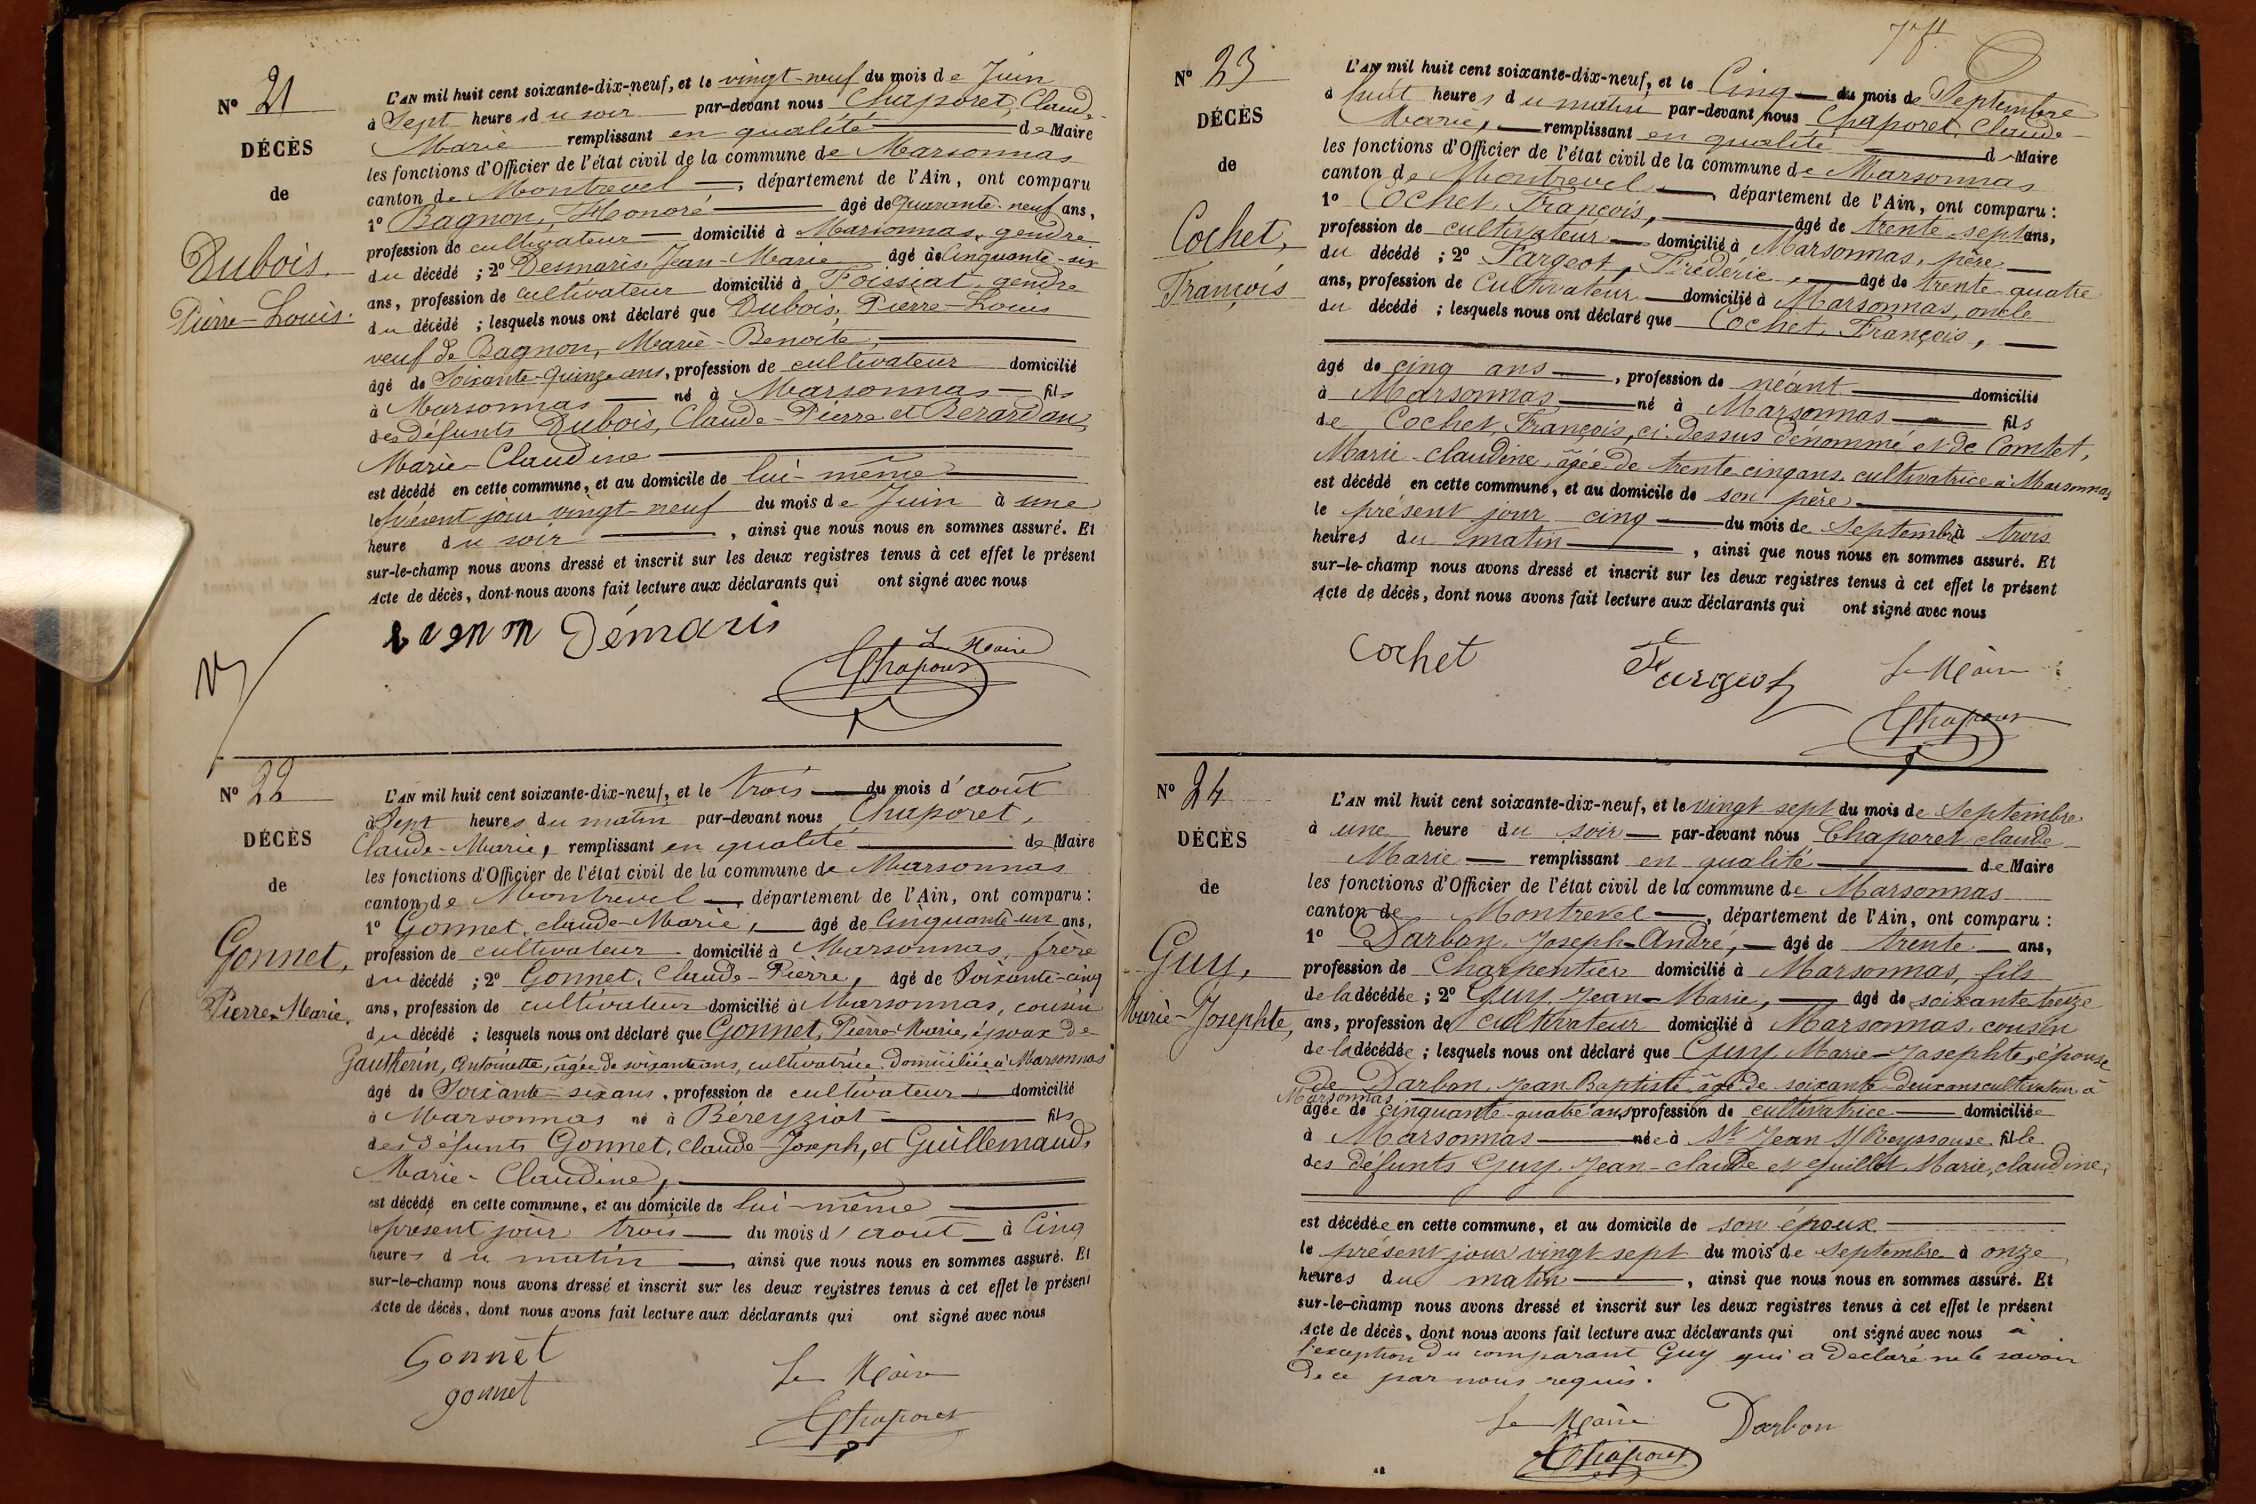 N° 21
DÉCÈS
de
Dubois
Pierre-Louis
L'AN mil huit cent soixante-dix-neuf, et le vingt-neuf du mois de Juin
à Sept heures du soir par-devant nous Chaporet, Claude-
Marie remplissant en qualité de Maire
les fonctions d'Officier de l'état civil de la commune de Marsonnas
canton de Montrevel, département de l'Ain, ont comparu
1° Bagnon, Honoré âgé de quarante-neuf ans,
profession de cultivateur domicilié à Marsonnas, gendre
du décédé ; 2° Desmaris, Jean-Marie âgé de Cinquante-six
ans, profession de cultivateur domicilié à Foissiat, gendre
du décédé ; lesquels nous ont déclaré que Dubois, Pierre-Louis
veuf de Bagnon, Marie-Benoite,
âgé de Soixante-quinze ans, profession de cultivateur domicilié
à Marsonnas né à Marsonnas fils
des défunts Dubois, Claude-Pierre et Berardan,
Marie-Claudine
est décédé en cette commune, et au domicile de lui-même
le présent jour vingt neuf du mois de Juin à une
heure du soir, ainsi que nous nous en sommes assuré. Et
sur-le-champ nous avons dressé et inscrit sur les deux registres tenus à cet effet le présent
Acte de décès, dont nous avons fait lecture aux déclarants qui ont signé avec nous
bagnon Démaris
Le Maire
Chaporet
N° 22
DÉCÈS
de
Gonnet,
Pierre-Marie.
L'AN mil huit cent soixante-dix-neuf, et le trois du mois d'août
à Sept heures du matin par-devant nous Chaporet,
Claude-Marie, remplissant en qualité de Maire
les fonctions d'Officier de l'état civil de la commune de Marsonnas
canton de Montrevel, département de l'Ain, ont comparu :
1° Gonnet, claude-Marie, âgé de Cinquante-un ans,
profession de cultivateur domicilié à Marsonnas, frère
du décédé ; 2° Gonnet, Claude-Pierre, âgé de Soixante-cinq
ans, profession de cultivateur domicilié à Marsonnas, cousin
du décédé ; lesquels nous ont déclaré que Gonnet, Pierre-Marie, époux de
Gautherin, Antoinette, âgée de soixante ans, cultivatrice, domiciliée à Marsonnas
âgé de Soixante-six ans, profession de cultivateur domicilié
à Marsonnas né à Béreyziat fils
des défunts Gonnet, Claude-Joseph, et Guillemaud,
Marie-Claudine,
est décédé en cette commune, et au domicile de lui-même
le présent jour trois du mois d'août à Cinq
heures du matin, ainsi que nous nous en sommes assuré. Et
sur-le-champ nous avons dressé et inscrit sur les deux registres tenus à cet effet le présent
Acte de décès, dont nous avons fait lecture aux déclarants qui ont signé avec nous
Gonnet
gonnet
Le Maire
Chaporet
N° 23
DÉCÈS
de
Cochet,
François
L'AN mil huit cent soixante-dix-neuf, et le Cinq du mois de Septembre
à huit heures du matin par-devant nous Chaporet, Claude-
Marie, remplissant en qualité de Maire
les fonctions d'Officier de l'état civil de la commune de Marsonnas
canton de Montrevel, département de l'Ain, ont comparu :
1° Cochet, François, âgé de trente-sept ans,
profession de cultivateur domicilié à Marsonnas, père
du décédé ; 2° Fargeot, Frédéric, âgé de trente-quatre
ans, profession de Cultivateur domicilié à Marsonnas, oncle
du décédé ; lesquels nous ont déclaré que Cochet, François,
âgé de cinq ans, profession de néant domicilié
à Marsonnas né à Marsonnas fils
de Cochet, François, ci-dessus dénommé et de Comtet,
Marie-claudine, âgée de trente cinq ans, cultivatrice à Marsonnas
est décédé en cette commune, et au domicile de son père
le présent jour cinq du mois de Septembre à trois
heures du matin, ainsi que nous nous en sommes assuré. Et
sur-le-champ nous avons dressé et inscrit sur les deux registres tenus à cet effet le présent
Acte de décès, dont nous avons fait lecture aux déclarants qui ont signé avec nous
Cochet
Fargeot
Le Maire
Chaporet
N° 24
DÉCÈS
de
Guy,
Marie-Josephte,
L'AN mil huit cent soixante-dix-neuf, et le vingt sept du mois de Septembre
à une heure du soir par-devant nous Chaporet, claude-
Marie remplissant en qualité de Maire
les fonctions d'Officier de l'état civil de la commune de Marsonnas
canton de Montrevel, département de l'Ain, ont comparu :
1° Darbon, Joseph-André, âgé de trente ans,
profession de Charpentier domicilié à Marsonnas, fils
de la décédée ; 2° Guy, Jean-Marie, âgé de soixante treize
ans, profession de cultivateur domicilié à Marsonnas, cousin
de la décédée ; lesquels nous ont déclaré que Guy, Marie-Josephte, épouse
de Darbon, Jean Baptiste, âgé de soixante-deux ans cultivateur à
Marsonnas
âgée de cinquante-quatre ans profession de cultivatrice domiciliée
à Marsonnas née à St Jean s/ Reyssouse fille
des défunts Guy, Jean-claude et Guillot Marie, claudine,
est décédée en cette commune, et au domicile de son époux
le présent jour vingt sept du mois de Septembre à onze
heures du matin, ainsi que nous nous en sommes assuré. Et
sur-le-champ nous avons dressé et inscrit sur les deux registres tenus à cet effet le présent
Acte de décès, dont nous avons fait lecture aux déclarants qui ont signé avec nous à
l'exception du comparant Guy qui a déclaré ne le savoir
de ce par nous requis.
Le Maire
Darbon
Chaporet